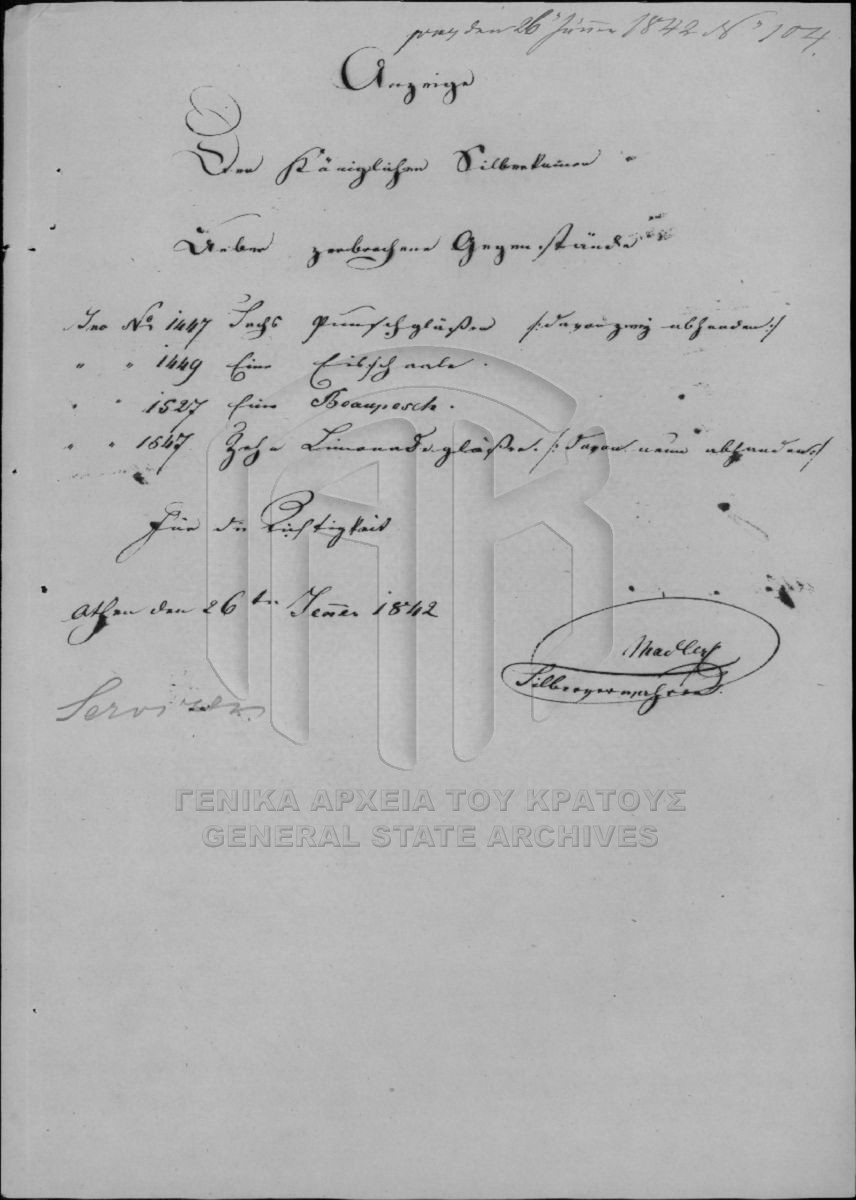 den 26 Jänner 1842 No 104.
Anzeige
Der Königlichen Silberkammer
Ueber zerbrochene Gegenstände
Inv No 1447 Sechs Punschgläßer /: davon zwey abhanden :/
" " 1449 Eine Eisschaale.
" " 1527 Eine
" " 1547 Zehn Limonadegläßer. /: davon neun abhanden :/
Für die Richtigkeit
Athen den 26ten Jenner 1842
Madler
Silberverwahrer
ΓΕΝΙΚΑ ΑΡΧΕΙΑ ΤΟΥ ΚΡΑΤΟΥΣ
GENERAL STATE ARCHIVES